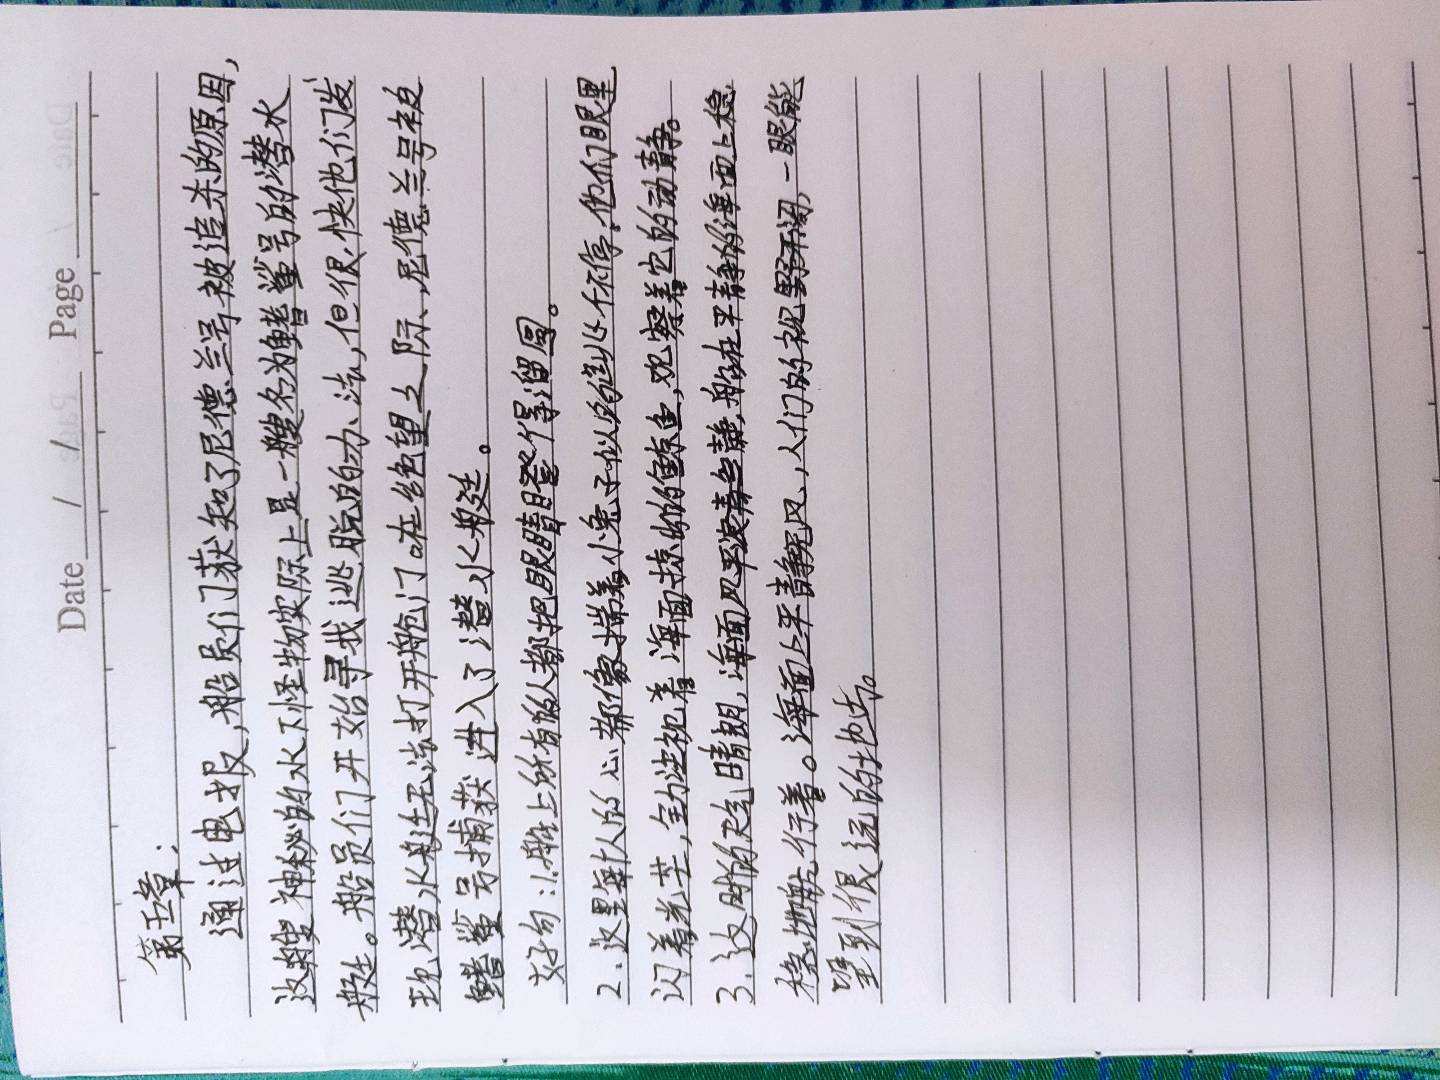 Date / / Page
第五章:
通过电报,船员们获知了尼德兰号被追杀的原因,
这艘神秘的水下怪物实际上是一艘名为鳍鲨号的潜水
艇。船员们开始寻找逃脱的办法,但很快他们发
现潜水艇无法打开舱门。在绝望之际,尼德兰号被
鳍鲨号捕获进入了潜水艇。
好句:1.船上所有的人都把眼睛瞪得溜圆。
2.这里每个人的心都像揣着小兔子似的跳个不停。他们眼里
闪着光芒,全神注视着海面掠的鲸鱼,观察着它的动静。
3.这时的天气晴朗,海面风平浪静,船在平静的海面上稳
稳地航行着。海面上平静无风,人们的视野开阔,一眼能
望到很远的地方。